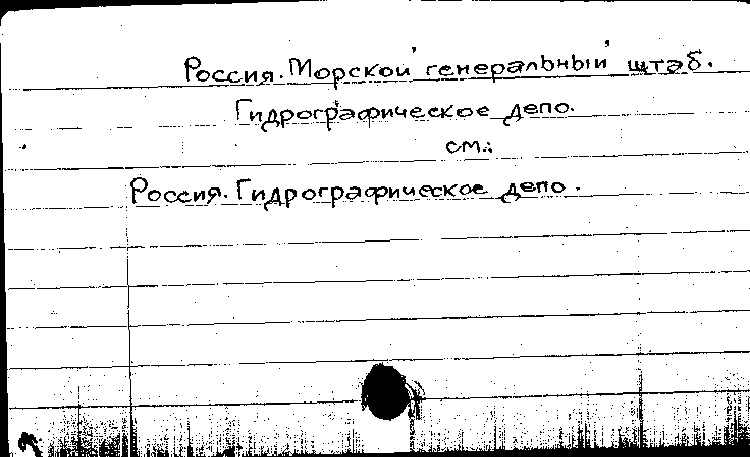 Россия. Морской генеральный штаб.
Гидрографическое депо.
см.:
Россия. Гидрографическое депо.